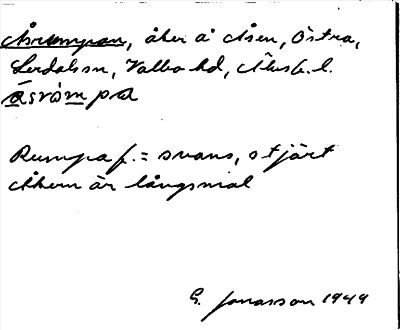 Åsrumpan, åker å Åsen, Östra,
Lerdalssn, Valbo hd, Älvsb. l.
åsrómpa
Rumpa f. = svans, stjärt
Åkern är långsmal
G. Jonasson 1949